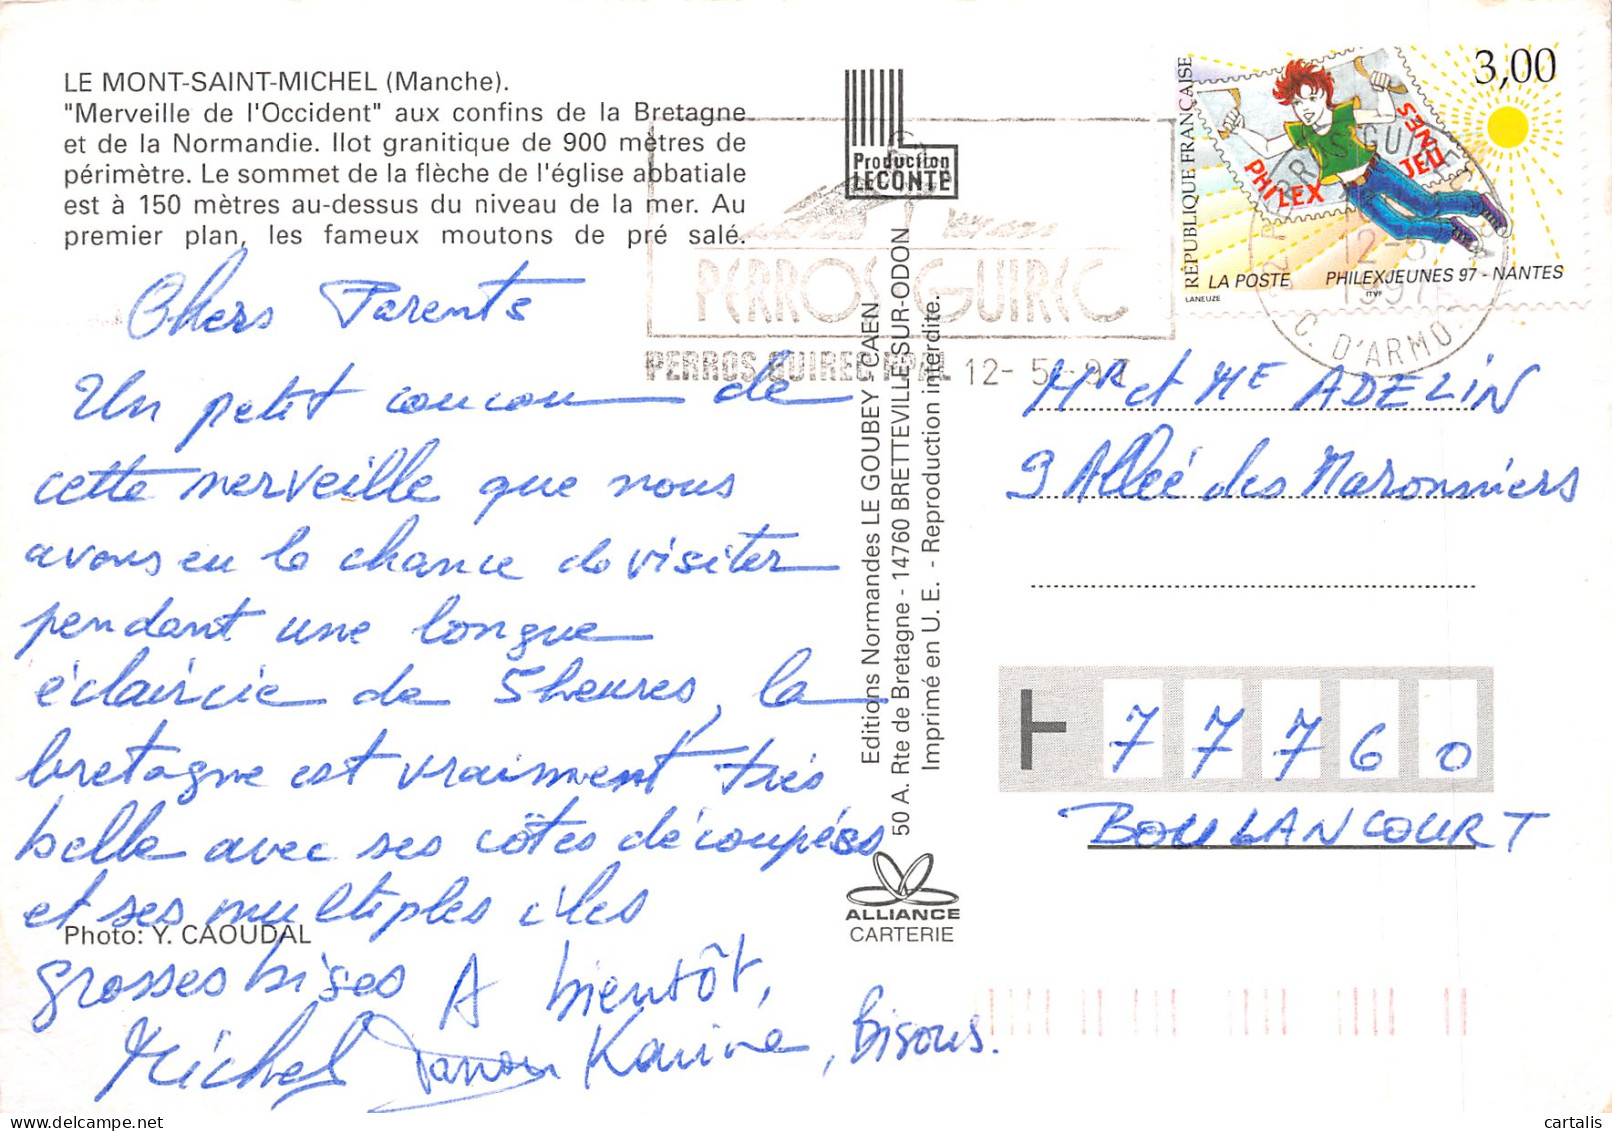 LE MONT-SAINT-MICHEL (Manche).
"Merveille de l'Occident" aux confins de la Bretagne
et de la Normandie. Ilot granitique de 900 mètres de
périmètre. Le sommet de la flèche de l'église abbatiale
est à 150 mètres au-dessus du niveau de la mer. Au
premier plan, les fameux moutons de pré salé.
Chers Parents
Un petit coucou de
cette merveille que nous
avons eu la chance de visiter
pendant une longue
éclaircie de 5 heures, la
bretagne est vraiment très
belle avec ses côtes découpées
et ses multiples îles
Photo: Y. CAOUDAL
grosses bises A bientôt,
Michel Karine, bisous.
Production
LECONTE
Editions Normandes LE GOUBEY - CAEN
50 A. Rte de Bretagne - 14760 BRETTEVILLE-SUR-ODON
Imprimé en U. E. - Reproduction interdite.
ALLIANCE
CARTERIE
PERROS-GUIREC
PERROS GUIREC PPAL 12-5-97
RÉPUBLIQUE FRANÇAISE
3,00
PHILEX
JEUNES
LA POSTE
PHILEXJEUNES 97 - NANTES
LANEUZE
ITVF
PERROS GUIREC
12-5
1997
C. D'ARMO.
Mr et Me ADELIN
9 Allée des Maronniers
77760
BOULANCOURT
cartalis